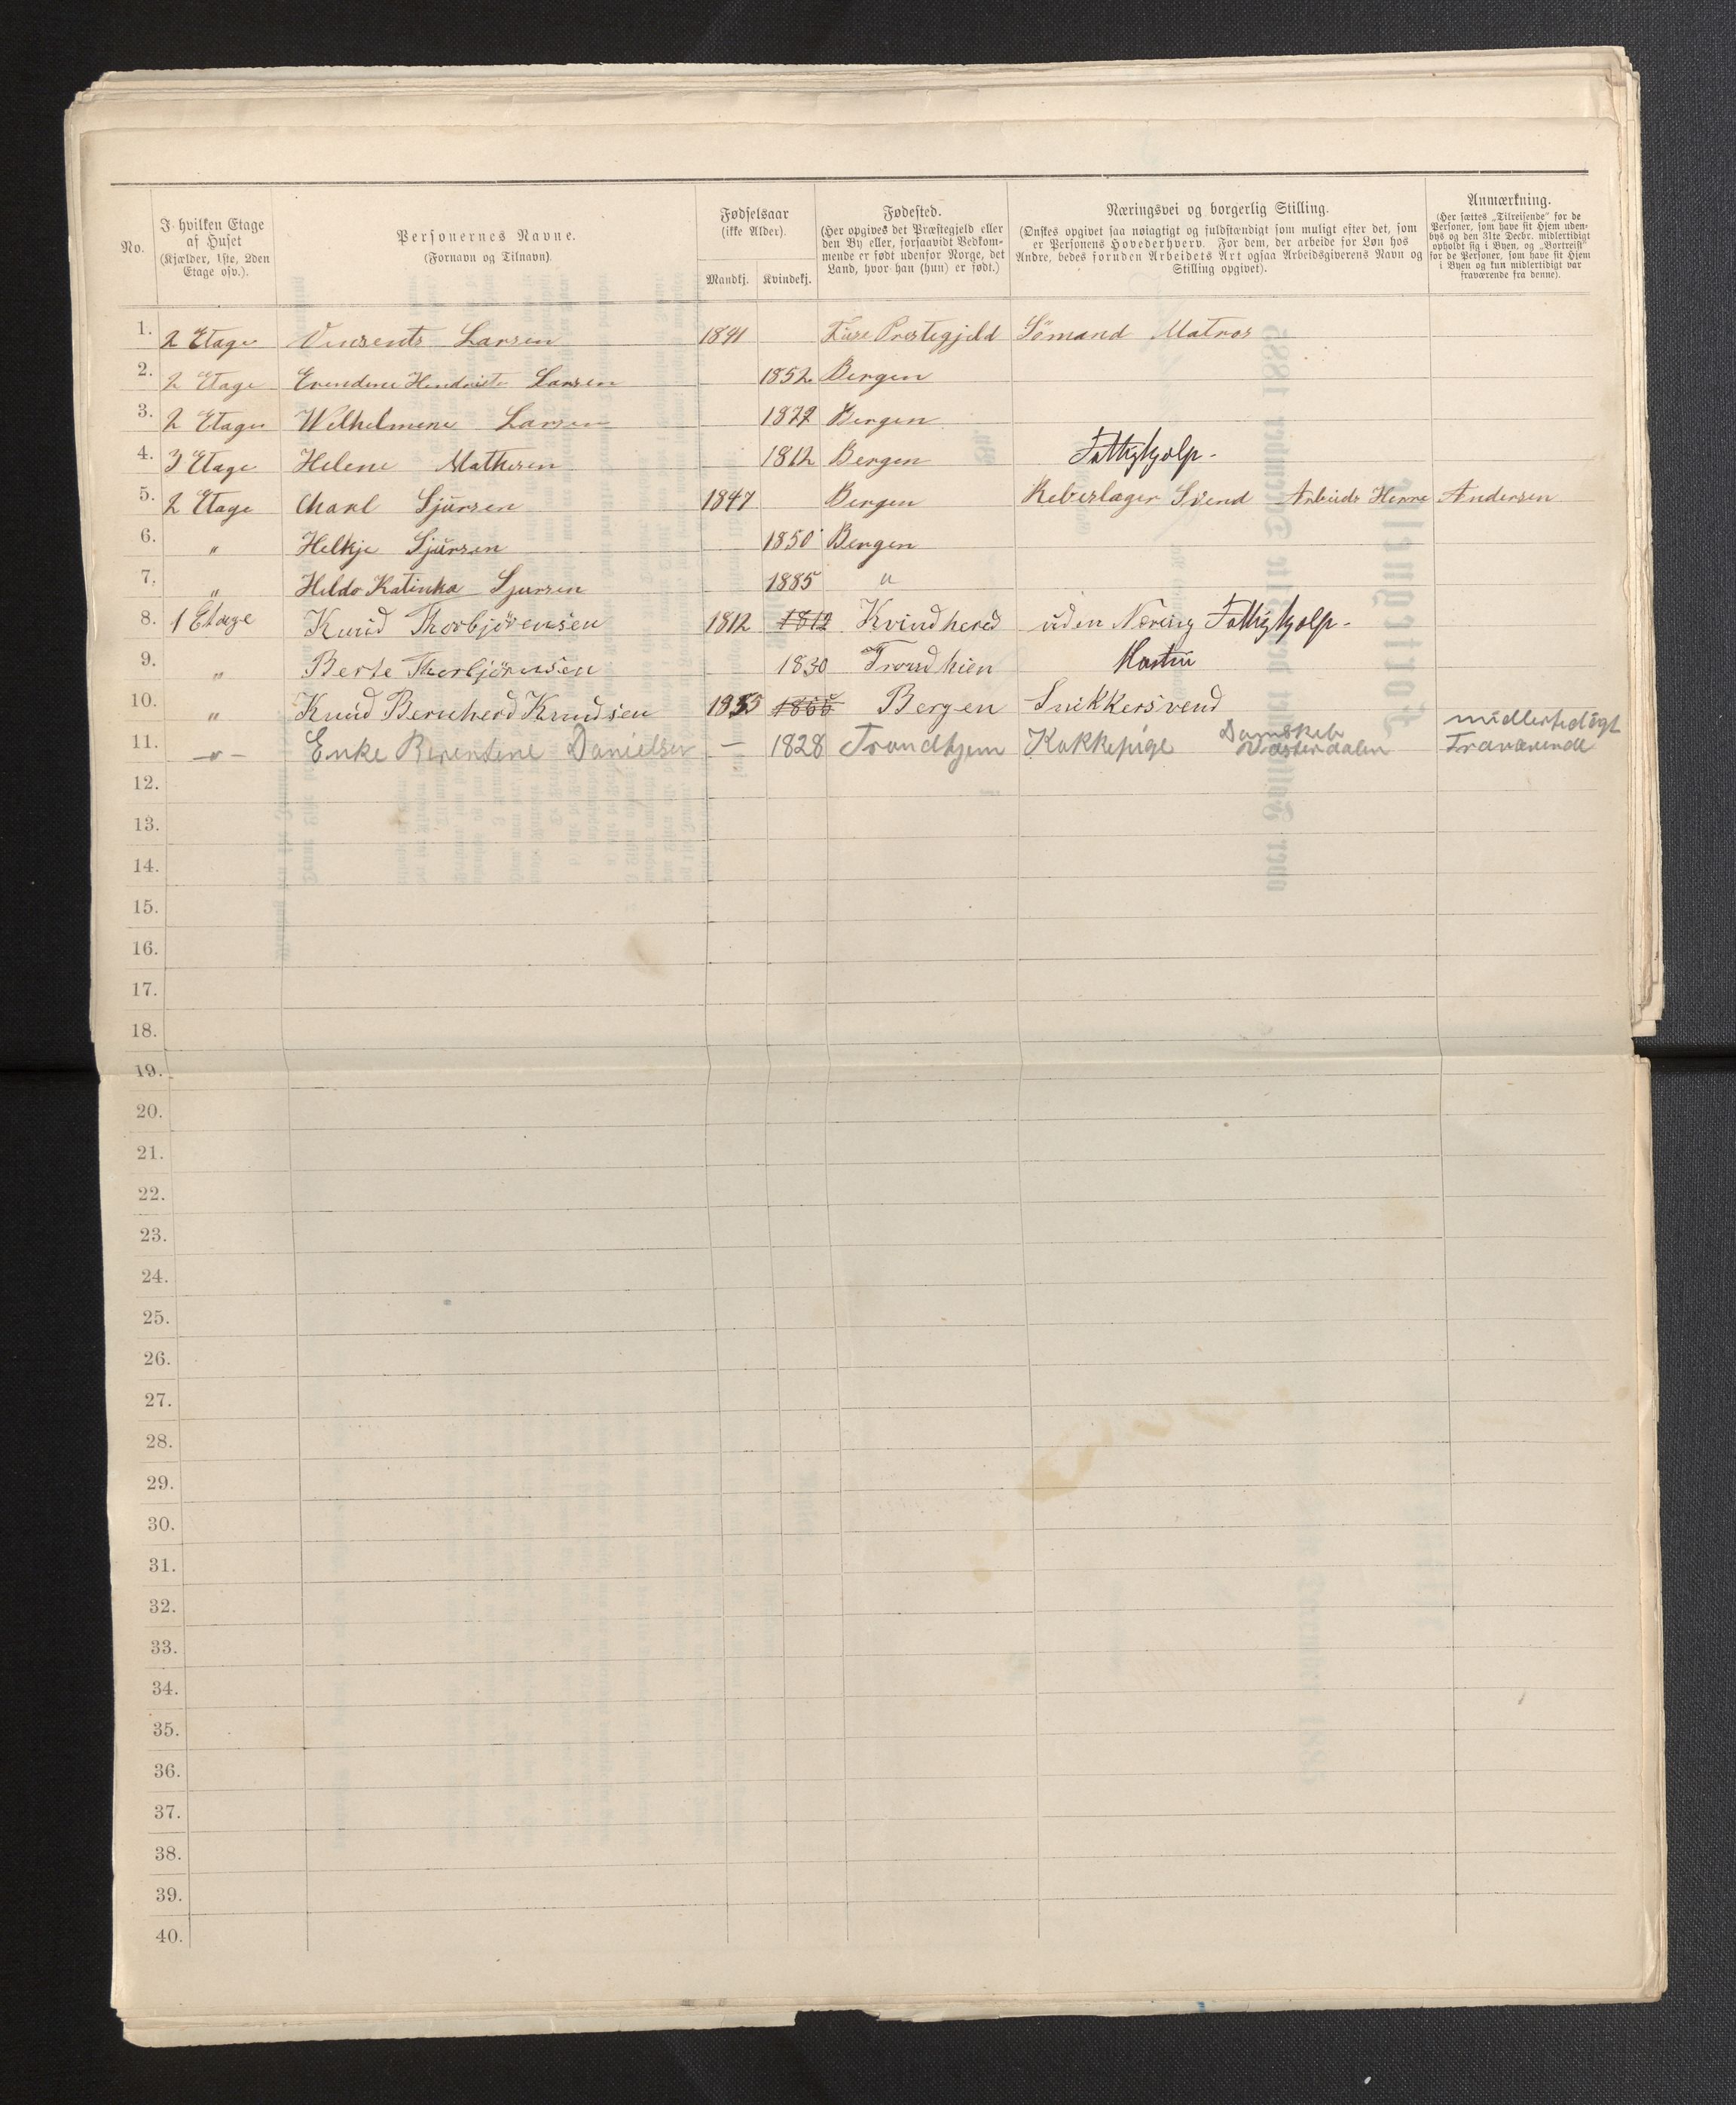 No.
I hvilken Etage
af Huset
(Kjælder, 1ste, 2den
Etage osv.).
Personernes Navne.
(Fornavn og Tilnavn)
Fødselsaar
(ikke Alder).
Mandkj. Kvindekj.
Fødested.
(Her opgives det Præstegjeld eller
den By eller, forsaavidt Vedkom-
mende er født udenfor Norge, det
Land, hvor han (hun) er født.)
Næringsvei og borgerlig Stilling.
(Ønskes opgivet saa nøiagtigt og fuldstændigt som muligt efter det, som
er Personens Hovederhverv. For dem, der arbeide for Løn hos
Andre, bedes foruden Arbeidets Art ogsaa Arbeidsgiverens Navn og
Stilling opgivet).
Anmærkning.
(Her sættes „Tilreisende" for de
Personer, som have sit Hjem uden-
bys og den 31te Decbr. midlertidigt
opholdt sig i Byen, og „Bortreist"
for de Personer, som have sit Hjem
i Byen og kun midlertidigt var
fraværende fra denne).
1. 2 Etage Vinsents Larsen 1841 Prestegjeld Sömand Matros
2. 2 Etage Larsen 1852 Bergen
3. 2 Etage Wilhelmene Larsen 1877 Bergen
4. 3 Etage Helene Mathesen 1812 Bergen Fattighjolp.
5. 2 Etage Charl Sjursen 1847 Bergen Rebeslager Svend Arbeids Herre Andersen
6. " Helkje Sjursen 1850 Bergen
7. " Katinka Sjursen 1885 "
8. 1 Etage Knud Thorbjörensen 1812 1812 Kvindhered uden Nering Fattighjolp.
9. " Berte Thorbjörensen 1830 Trondhien Hustru
10. " Knud Bernherd Knudsen 1855 1866 Bergen Snikkersvend
11. -"- Enke Berentine Danielsen — 1828 Trondhjem Kokkepige Dampskib Vesterdalen midlertedigt
Fraværende
12.
13.
14.
15.
16.
17.
18.
19.
20.
21.
22.
23.
24.
25.
26.
27.
28.
29.
30.
31.
32.
33.
34.
35.
36.
37.
38.
39.
40.